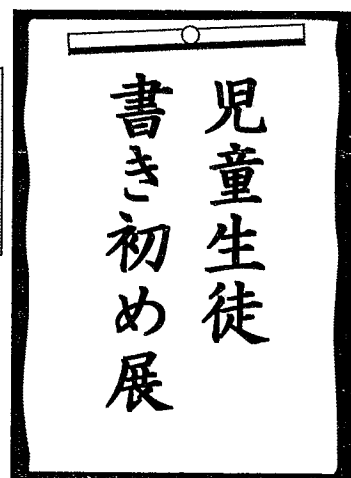 児童生徒
書き初め展